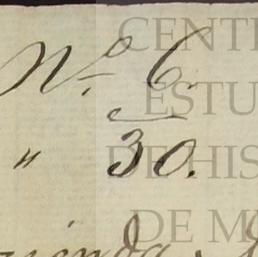 Nº 6
" 30.
CENT
ESTU
DE HIS
DE M